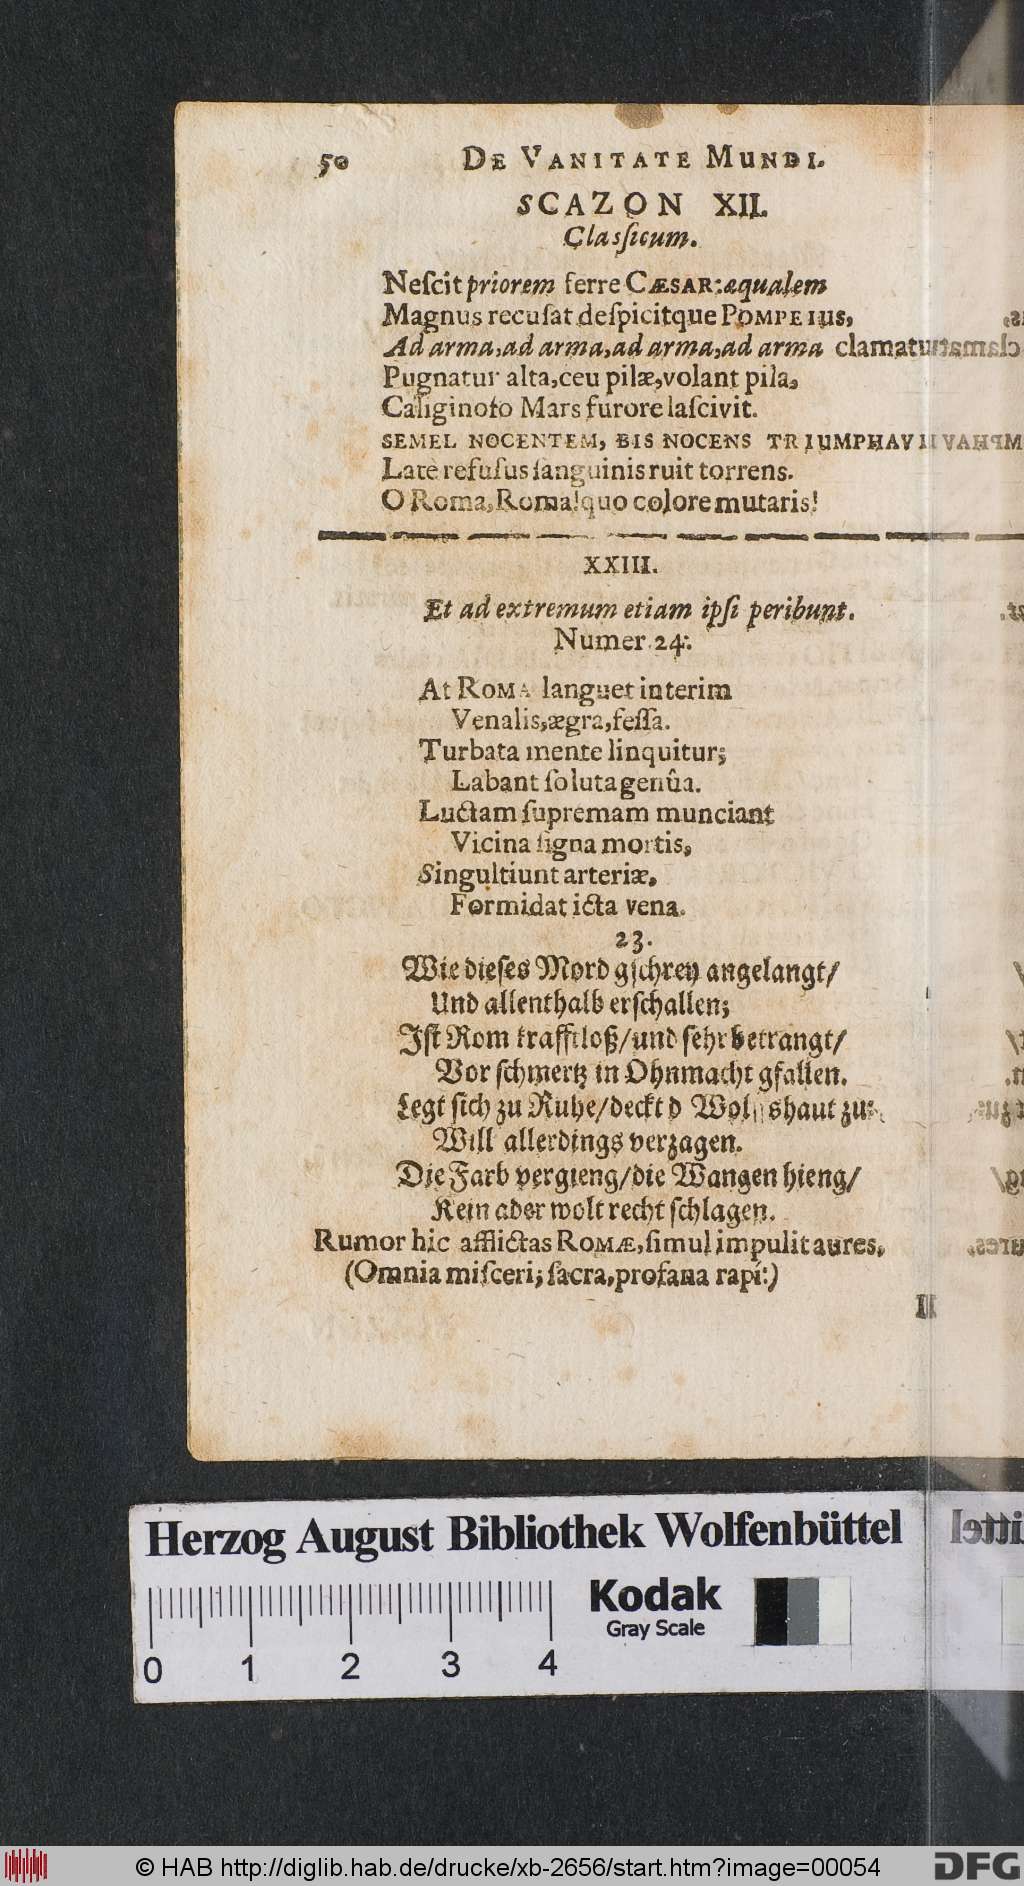 50 DE VANITATE MUNDI.
SCAZON XII.
Claſſicum.
Neſcit priorem ferre CÆSAR: æqualem
Magnus recuſat deſpicitque POMPEIUS,
Ad arma, ad arma, ad arma, ad arma clamatur
Pugnatur alta, ceu pilæ, volant pila,
Caliginoſo Mars furore laſcivit.
SEMEL NOCENTEM, BIS NOCENS TRIUMPHAVI
Latè refuſus ſanguinis ruit torrens.
O Roma, Roma! quo colore mutaris!
XXIII.
Et ad extremum etiam ipſi peribunt.
Numer. 24.
At ROMA languet interim
Venalis, ægra, feſſa.
Turbata mente linquitur;
Labant ſoluta genûa.
Luctam ſupremam munciant
Vicina ſigna mortis,
Singultiunt arteriæ,
Formidat icta vena.
23.
Wie dieſes Mord gſchrey angelangt/
Und allenthalb erſchallen;
Iſt Rom krafftloß/und ſehr betrangt/
Vor ſchmertz in Ohnmacht gfallen.
Legt ſich zu Ruhe/deckt d Wolffshaut zu:
Will allerdings verzagen.
Die Farb vergieng/die Wangen hieng/
Kein ader wolt recht ſchlagen.
Rumor hic afflictas ROMÆ, ſimul impulit aures,
(Omnia miſceri; ſacra, profana rapi:)
Herzog August Bibliothek Wolfenbüttel
Kodak
Gray Scale
0 1 2 3 4
© HAB http://diglib.hab.de/drucke/xb-2656/start.htm?image=00054
DFG